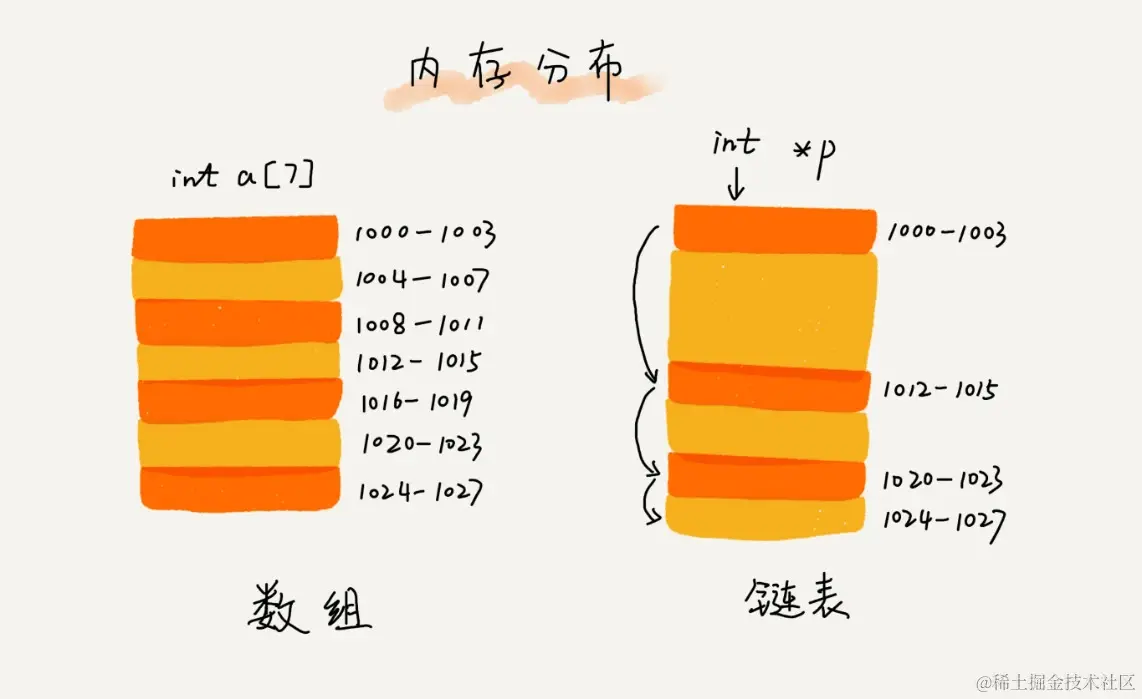 内存分布
int a[7]
1000-1003
1004-1007
1008-1011
1012-1015
1016-1019
1020-1023
1024-1027
数组
int *p
1000-1003
1012-1015
1020-1023
1024-1027
链表
@稀土掘金技术社区